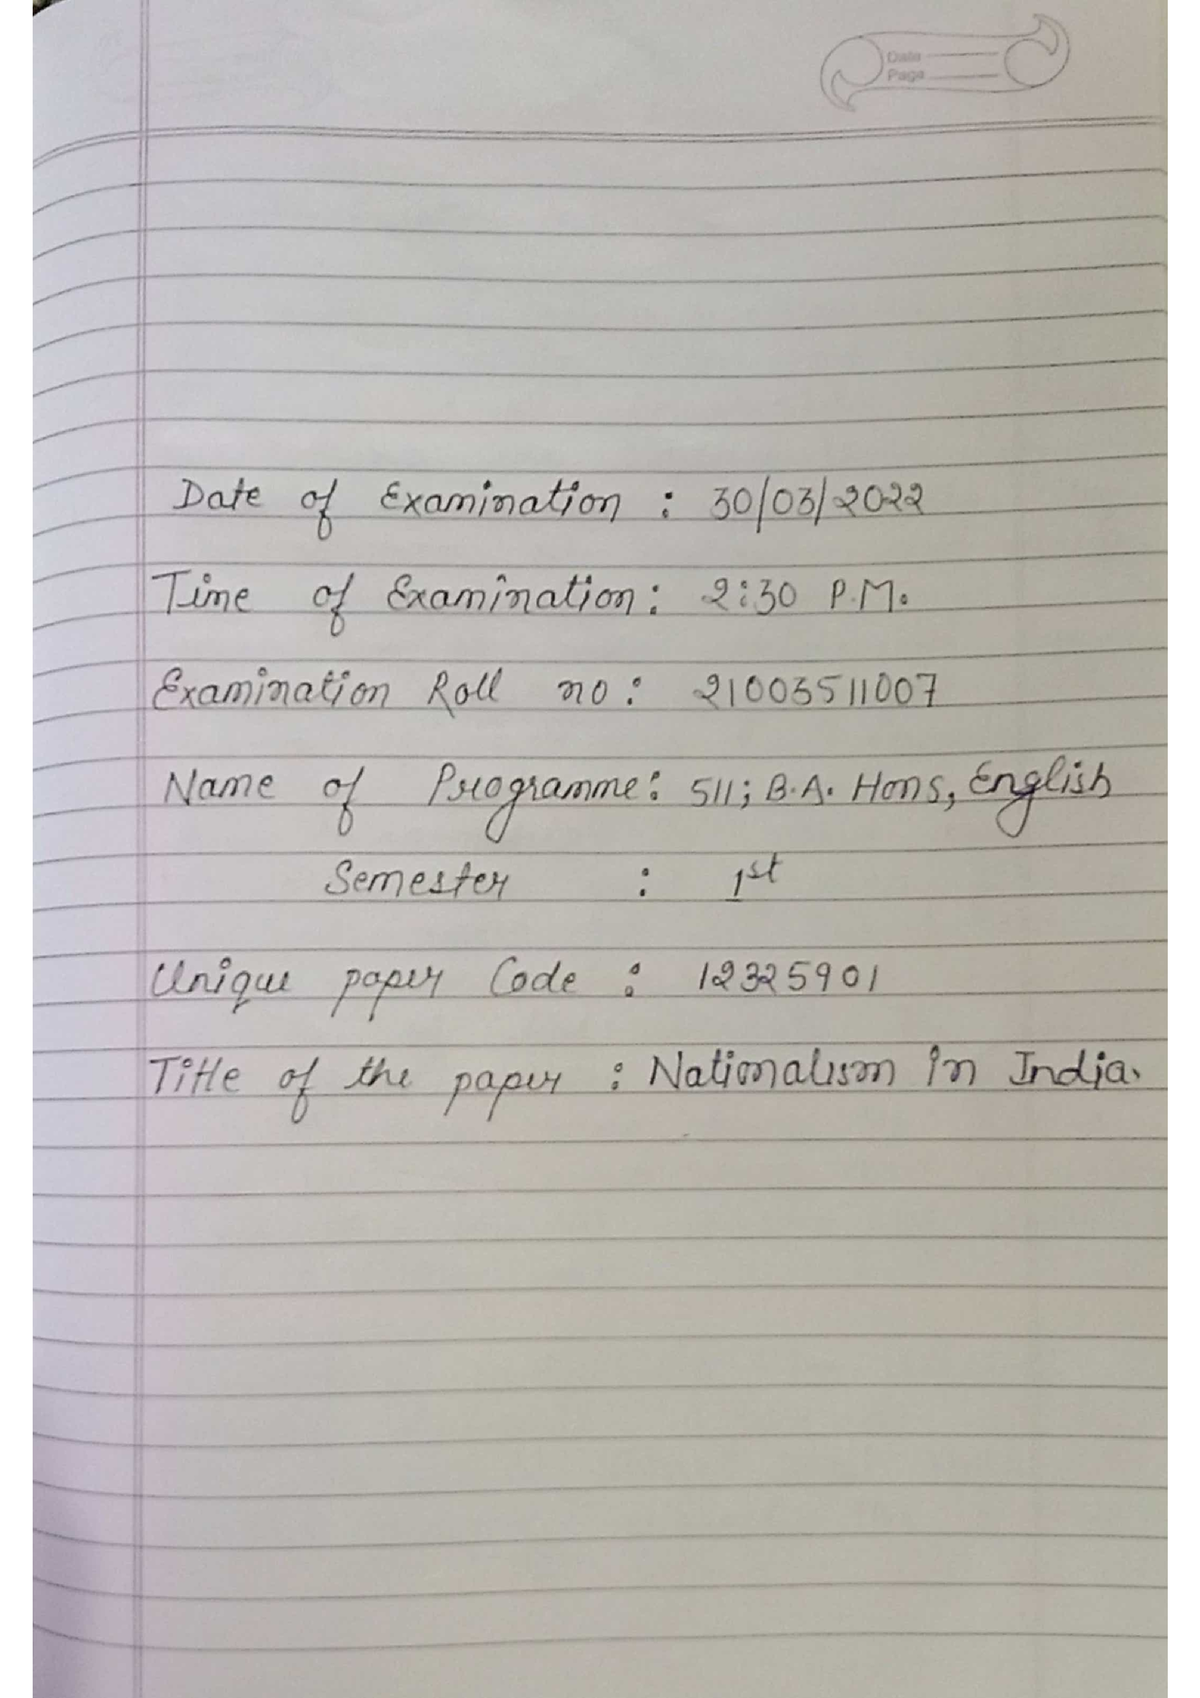 Date
Page
Date of Examination : 30/03/2022
Time of Examination : 2:30 P.M.
Examination Roll no : 21003511007
Name of Programme : 511; B.A. Hons, English
Semester : 1st
Unique paper Code : 12325901
Title of the paper : Nationalism in India.